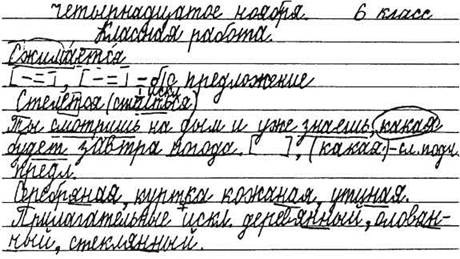 Четырнадцатое ноября. 6 класс
Классная работа.
Сжимается
[-=], [-=] - б/с предложение
искл.
Стелется (стелиться)
Ты смотришь на дым и уже знаешь, какая
будет завтра погода. [ ], (какая) - сл. подч.
предл.
Серебряная, куртка кожаная, утиная.
Прилагательные искл. деревянный, оловян-
ный, стеклянный.